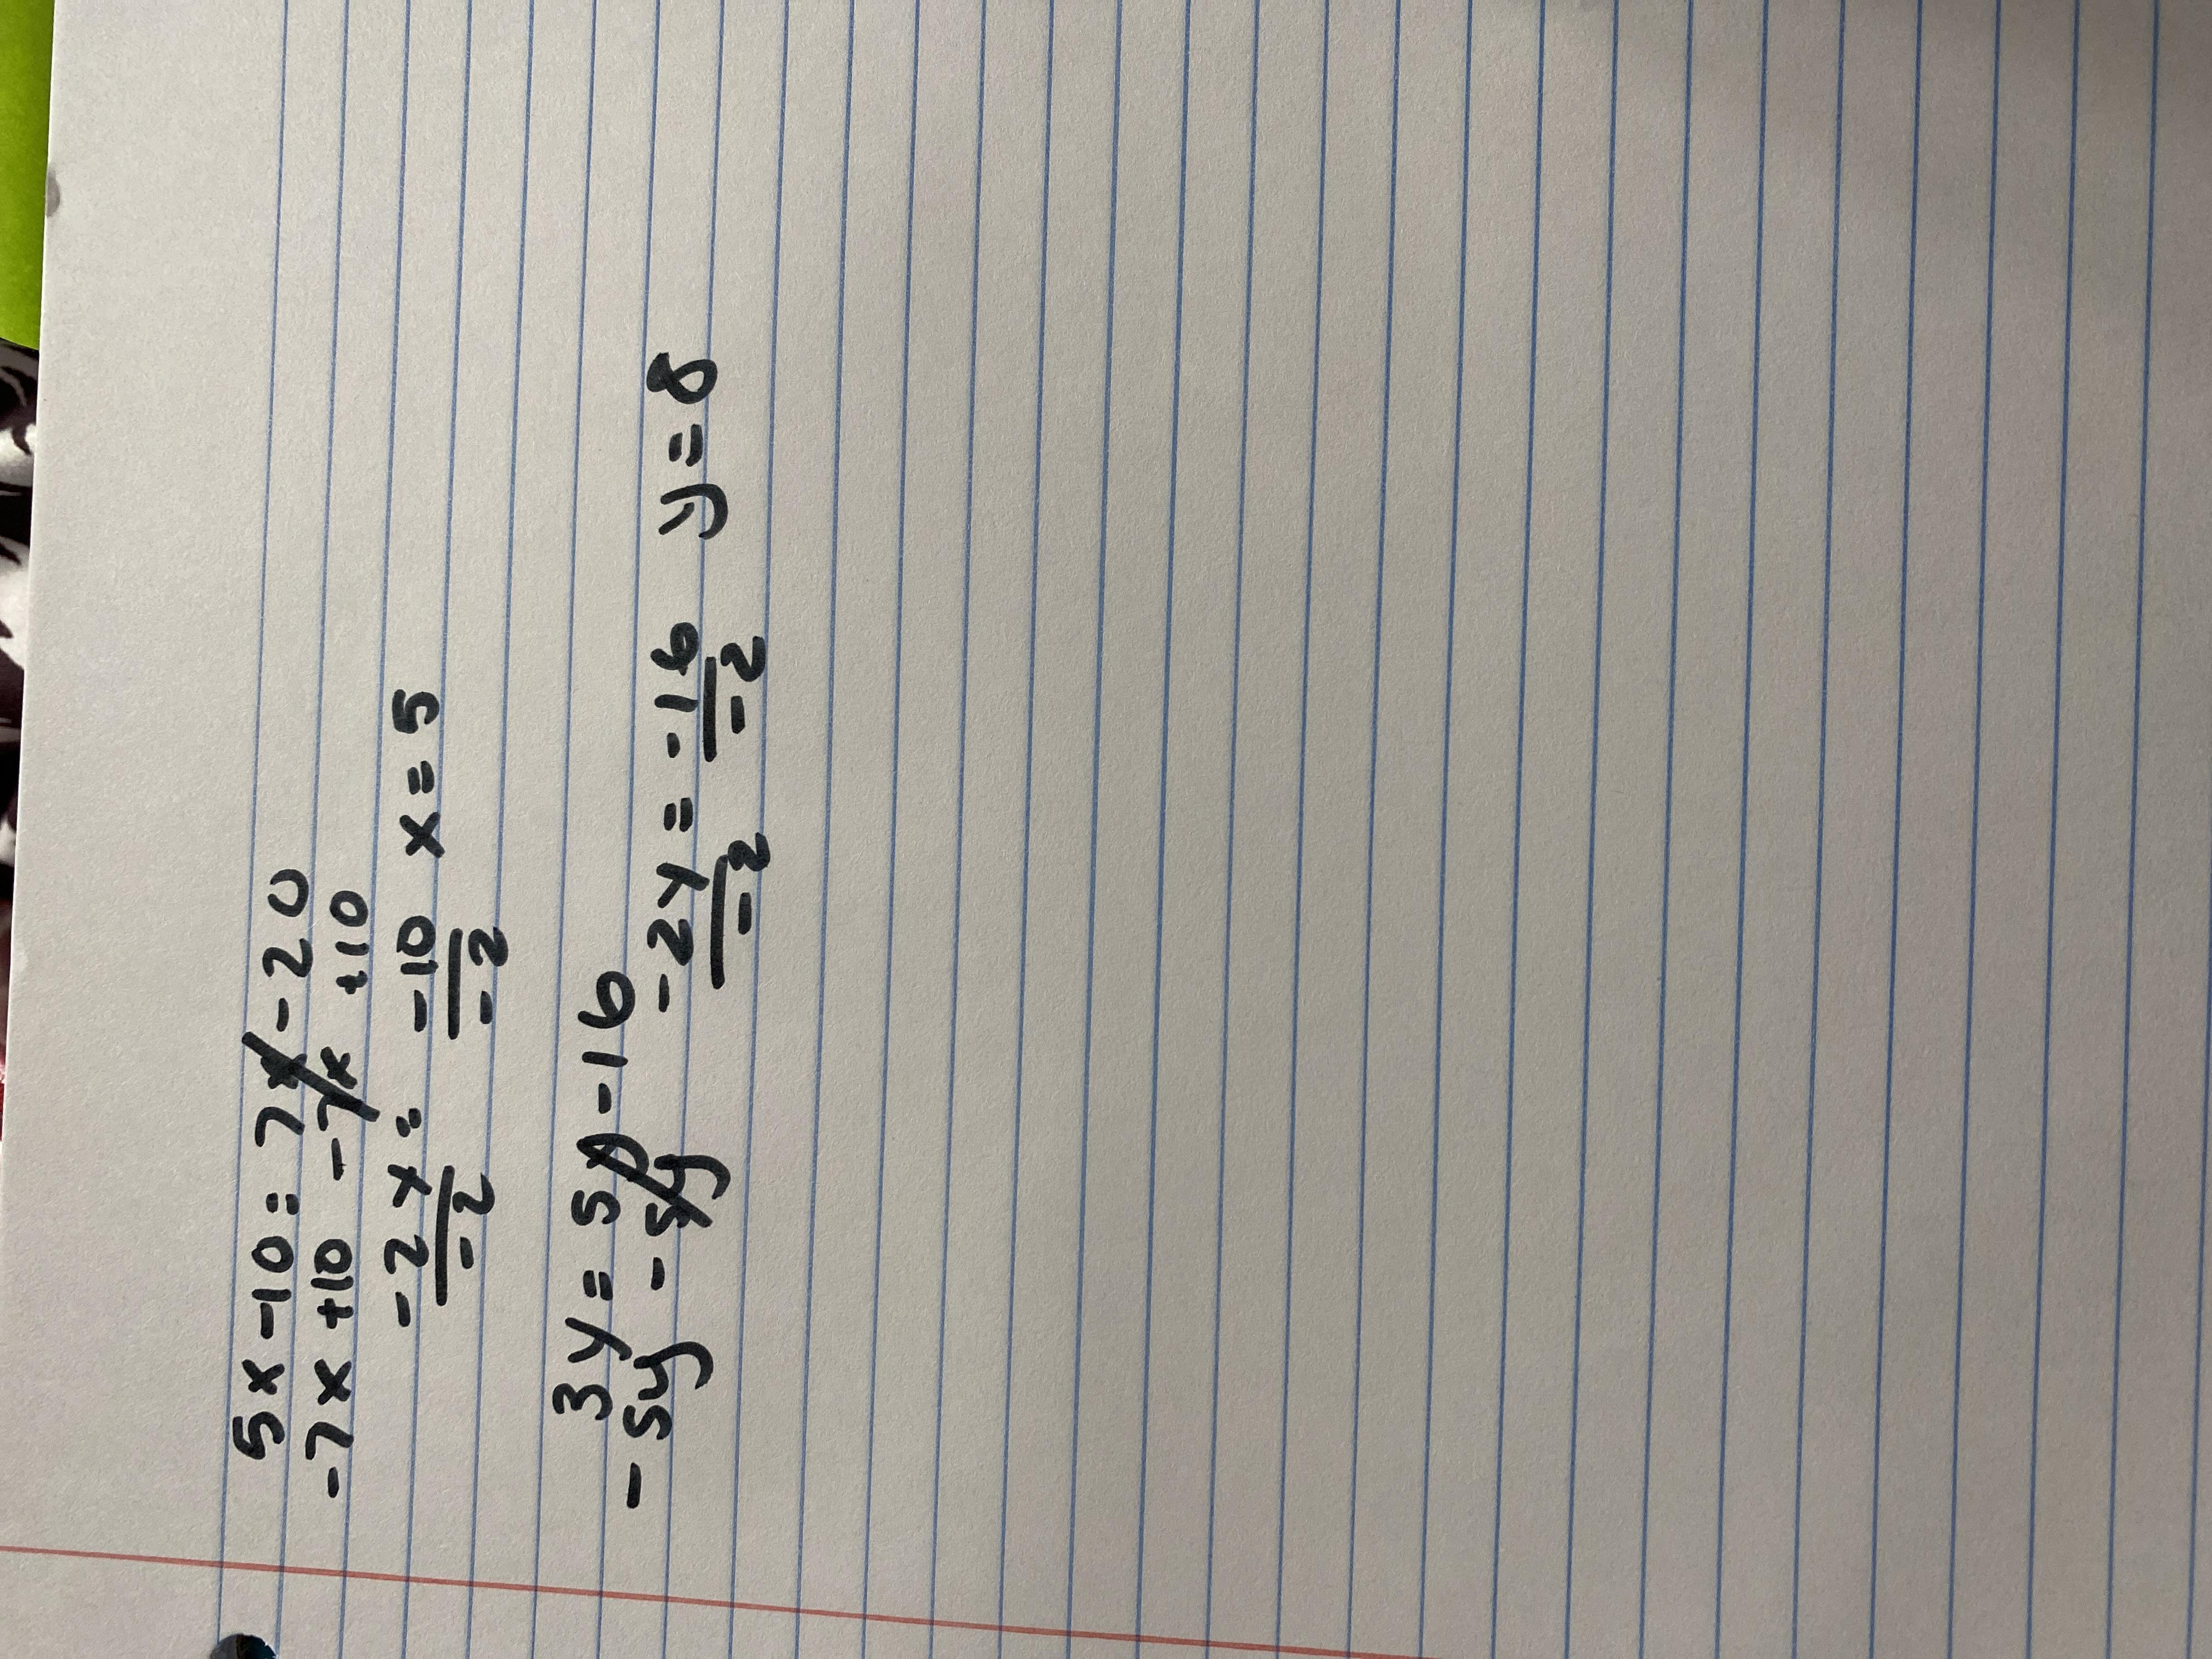 5x-10=7x-20
-7x+10 -7x +10
-2x= -10 x=5
-2 -2
3y=5y-16
-5y -5y -2y=-16 y=8
-2 -2